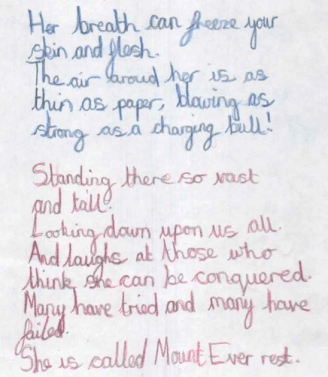 Her breath can freeze your
skin and flesh.
The air aroud her is as
thin as paper, blowing as
strong as a charging bull!
Standing there so vast
and tall!
Looking down upon us all.
And laughs at those who
think she can be conquered.
Many have tried and many have
failed.
She is called Mount Ever rest.